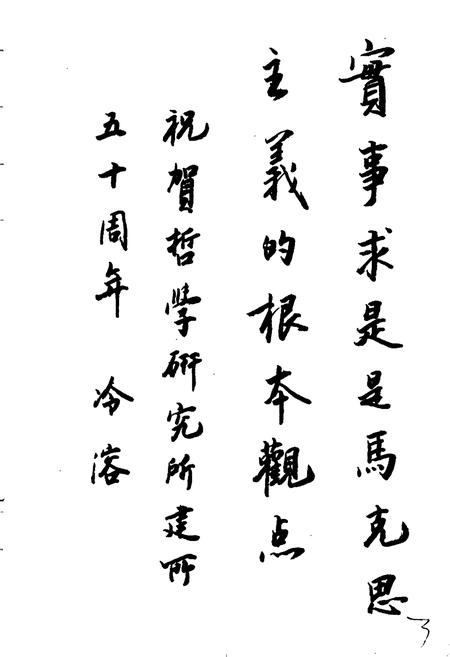 實事求是是馬克思
主義的根本觀点
祝賀哲學研究所建所
五十周年 冷溶
3